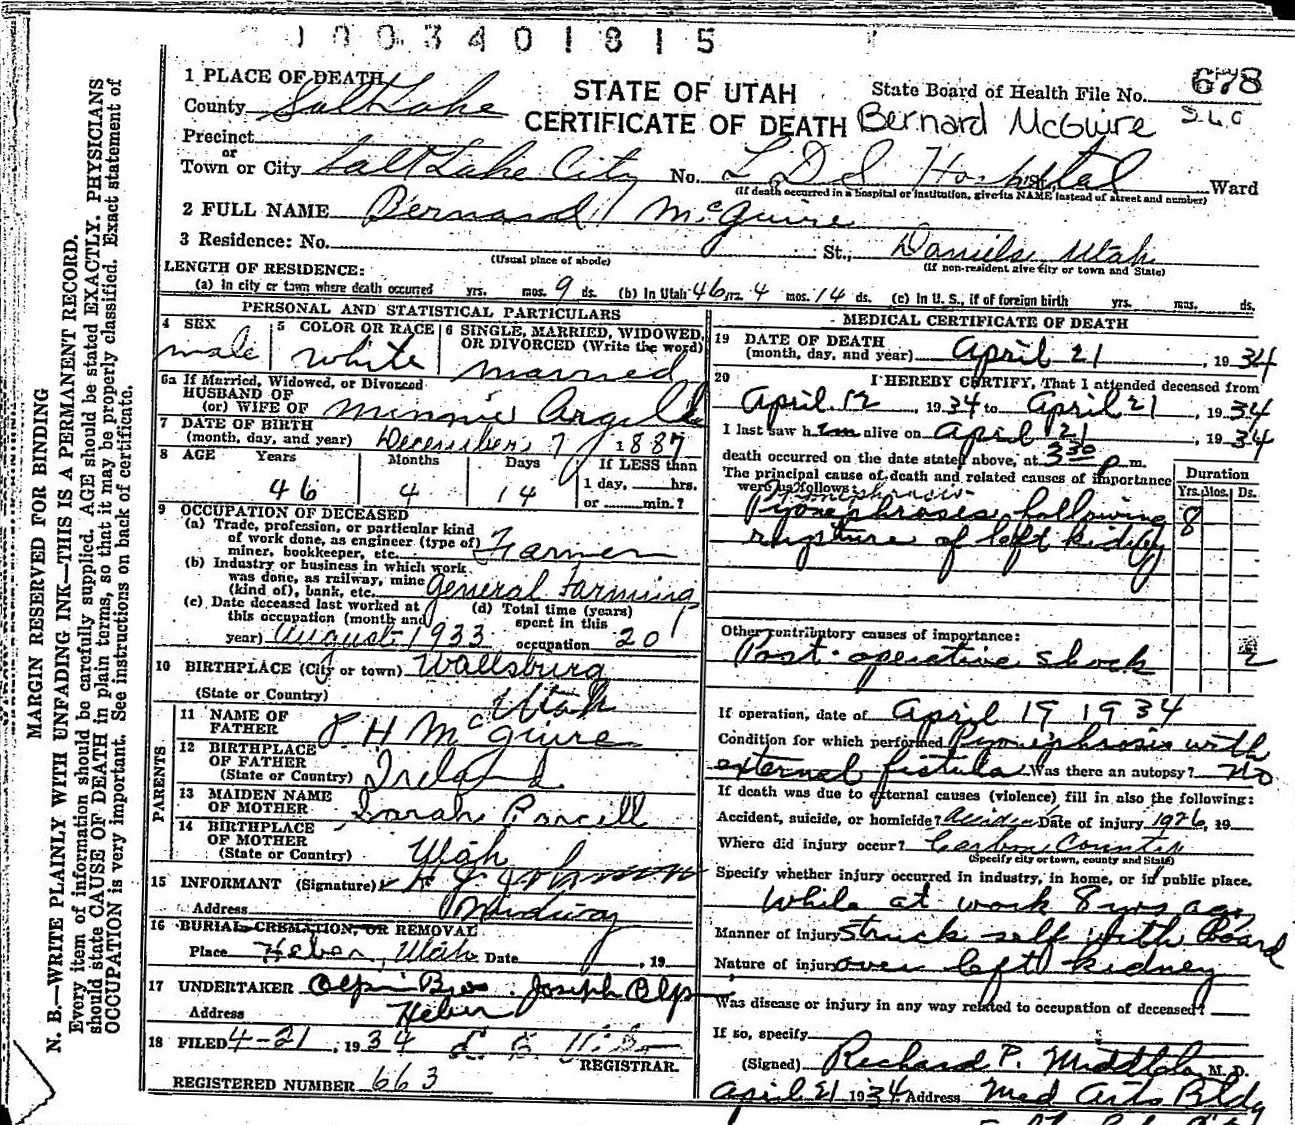 1003401815
678
1 PLACE OF DEATH
County Salt Lake
STATE OF UTAH
CERTIFICATE OF DEATH
State Board of Health File No.
Bernard McGuire SLC
Precinct
or
Town or City Salt Lake City No. L D S Hospital Ward
(If death occurred in a hospital or institution, give its NAME instead of street and number)
2 FULL NAME Bernard McGuire
3 Residence: No. St., Daniels Utah
(Usual place of abode) (If non-resident give city or town and State)
LENGTH OF RESIDENCE:
(a) In city or town where death occurred yrs. mos. 9 ds. (b) In Utah 46 yrs. 4 mos. 14 ds. (c) In U. S., if of foreign birth yrs. mos. ds.
PERSONAL AND STATISTICAL PARTICULARS
4 SEX
male
5 COLOR OR RACE
white
6 SINGLE, MARRIED, WIDOWED,
OR DIVORCED (Write the word)
married
6a If Married, Widowed, or Divorced
HUSBAND OF
(or) WIFE OF Minnie
7 DATE OF BIRTH
(month, day, and year) December 7 1887
8 AGE Years Months Days If LESS than
46 4 14 1 day, hrs.
or min.?
9 OCCUPATION OF DECEASED
(a) Trade, profession, or particular kind
of work done, as engineer (type of)
miner, bookkeeper, etc. Farmer
(b) Industry or business in which work
was done, as railway, mine
(kind of), bank, etc. General Farming
(c) Date deceased last worked at (d) Total time (years)
this occupation (month and spent in this
year) August 1933 occupation 20
10 BIRTHPLACE (City or town) Wallsburg
(State or Country) Utah
PARENTS
11 NAME OF
FATHER H McGuire
12 BIRTHPLACE
OF FATHER
(State or Country) Ireland
13 MAIDEN NAME
OF MOTHER Sarah
14 BIRTHPLACE
OF MOTHER
(State or Country) Utah
15 INFORMANT (Signature) Johnson
Address Midway
16 BURIAL, CREMATION, OR REMOVAL
Place Heber, Utah Date , 19
17 UNDERTAKER Olpin Bros. Joseph Olpin
Address Heber
18 FILED 4-21, 1934
REGISTRAR.
REGISTERED NUMBER 663
MEDICAL CERTIFICATE OF DEATH
19 DATE OF DEATH
(month, day, and year) April 21, 1934
20 I HEREBY CERTIFY, That I attended deceased from
April 12, 1934 to April 21, 1934
I last saw him alive on April 21, 1934
death occurred on the date stated above, at 3 30 p m.
The principal cause of death and related causes of importance
were as follows:
Duration
Yrs. Mos. Ds.
Pyonephrosis
Pyonephroses following 8
rupture of left kidney
Other contributory causes of importance:
Post-operative shock 2
If operation, date of April 19 1934
Condition for which performed Pyonephrosis with
external fistula Was there an autopsy? no
If death was due to external causes (violence) fill in also the following:
Accident, suicide, or homicide? Accident Date of injury 1926, 19
Where did injury occur? Carbon County
(Specify city or town, county and State)
Specify whether injury occurred in industry, in home, or in public place.
While at work 8 yrs ago
Manner of injury Struck self with Board
Nature of injury over left kidney
Was disease or injury in any way related to occupation of deceased?
If so, specify
(Signed) Richard P. Middleton M. D.
April 21 1934 Address Med Arts Bldg
MARGIN RESERVED FOR BINDING
N. B.—WRITE PLAINLY WITH UNFADING INK—THIS IS A PERMANENT RECORD.
Every item of information should be carefully supplied. AGE should be stated EXACTLY. PHYSICIANS
should state CAUSE OF DEATH in plain terms, so that it may be properly classified. Exact statement of
OCCUPATION is very important. See instructions on back of certificate.